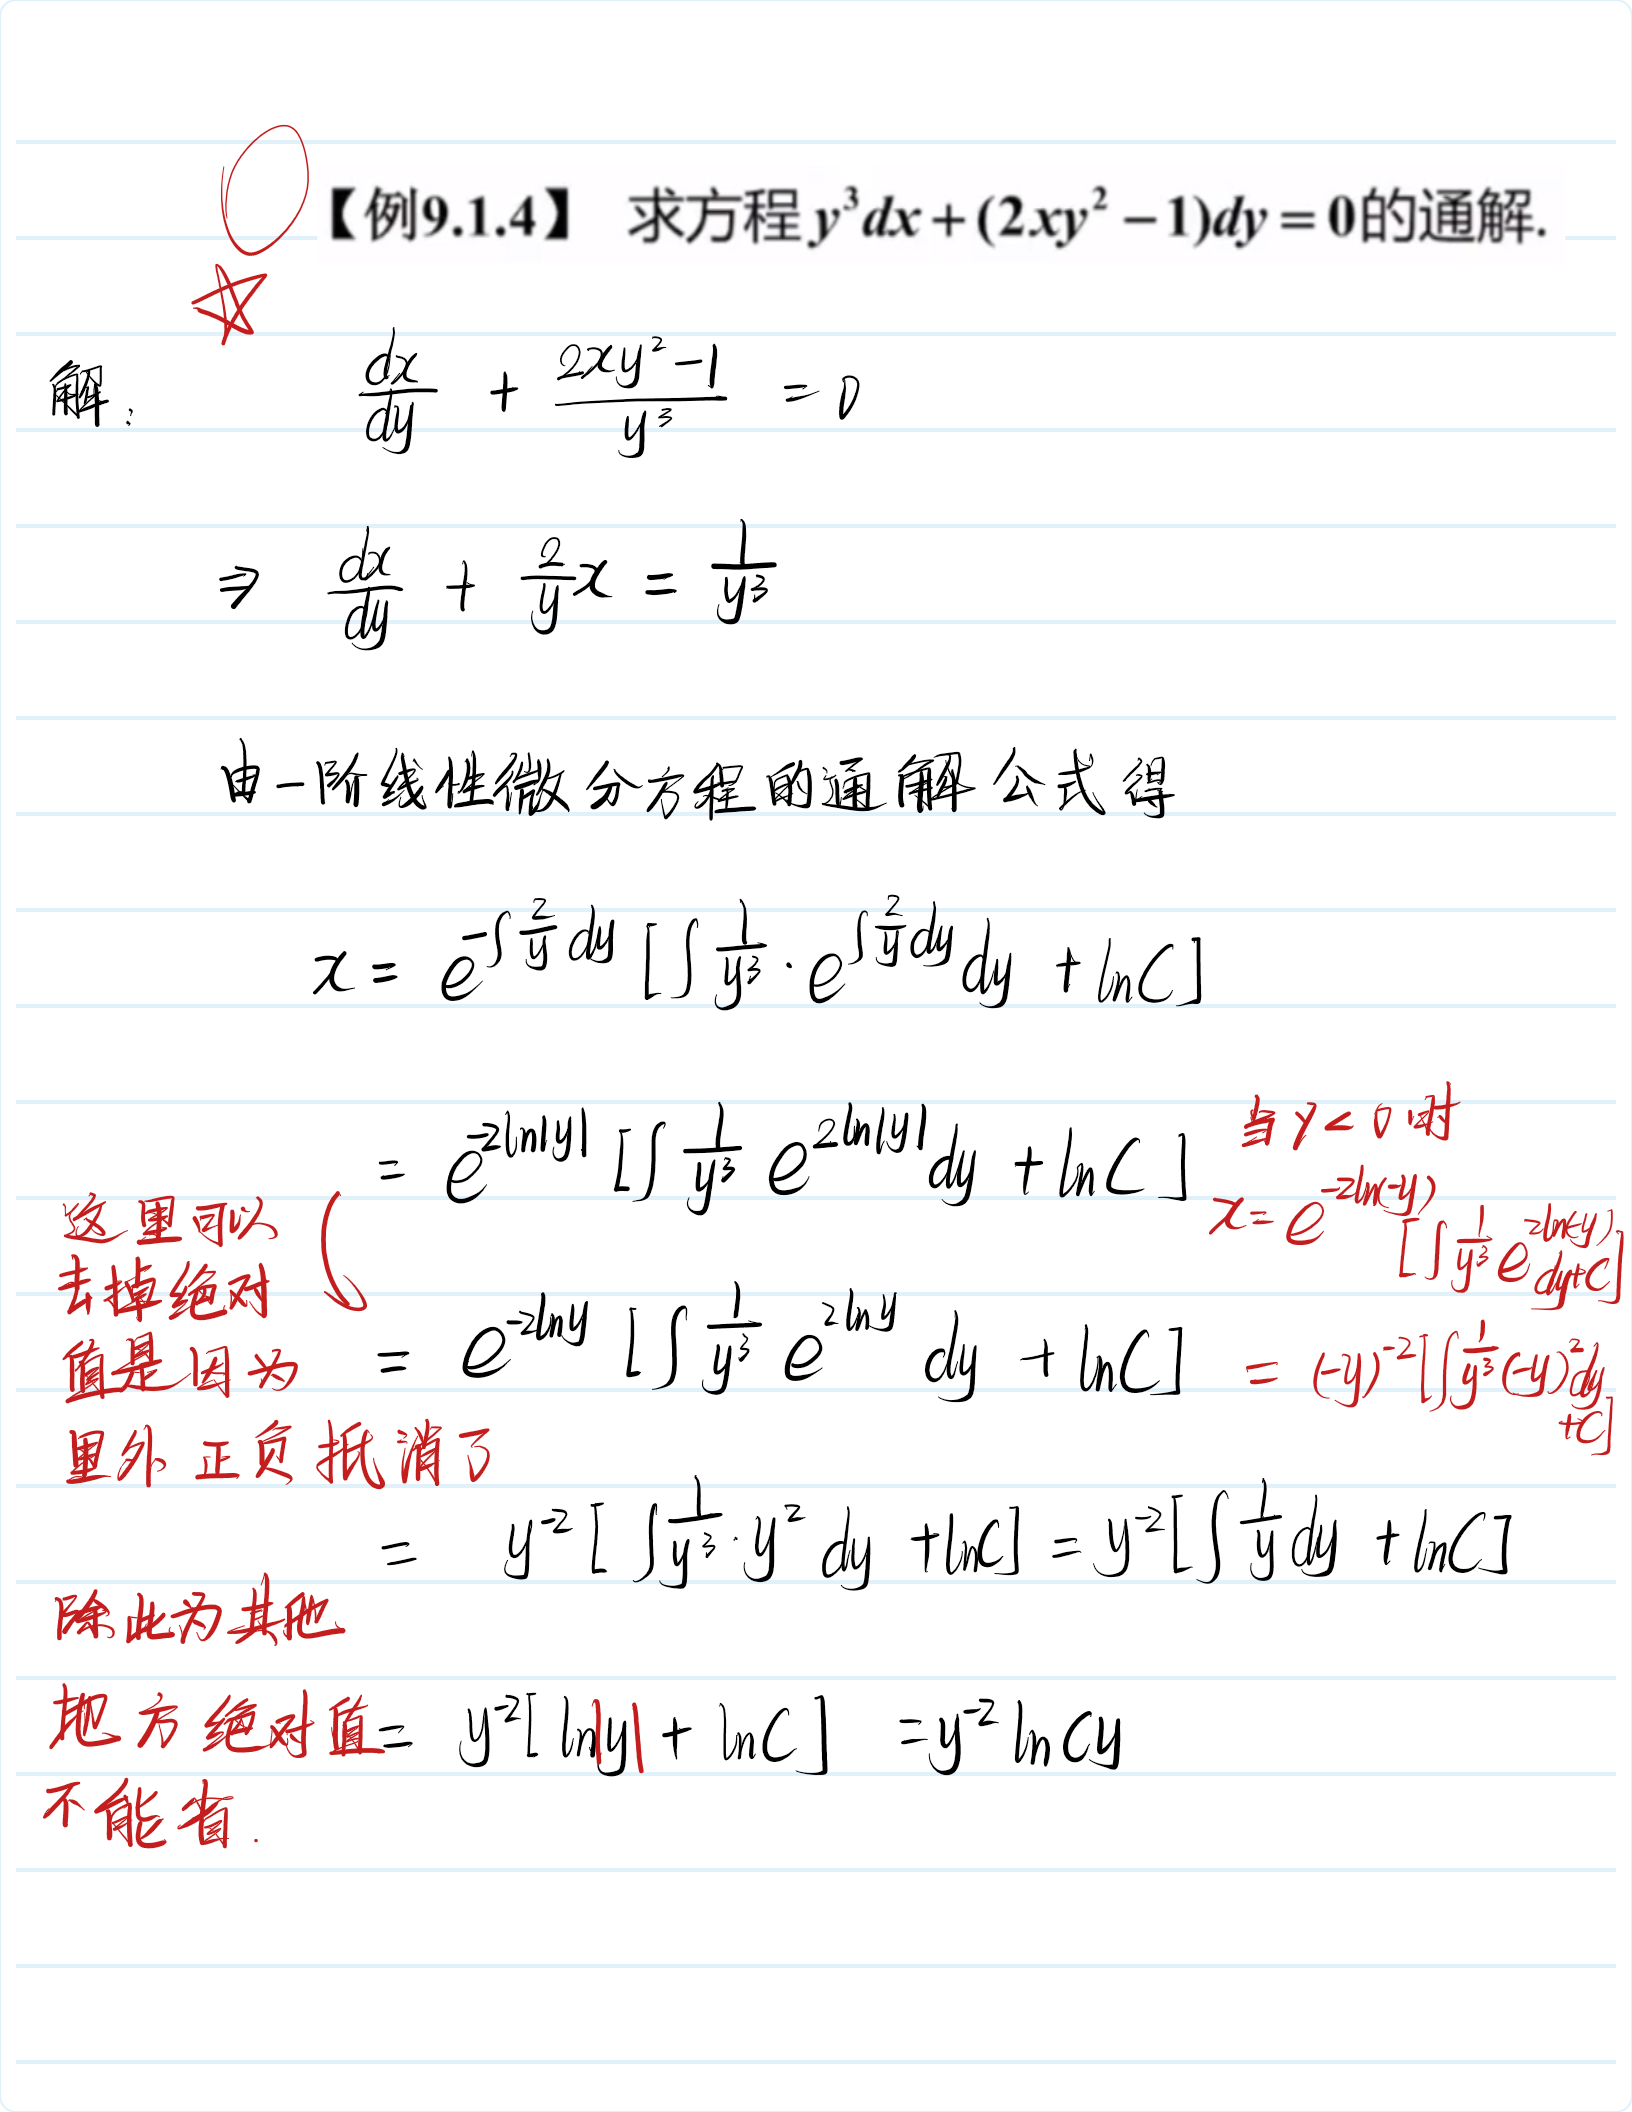 【例9.1.4】 求方程 y³dx + (2xy² − 1)dy = 0的通解.
解: dx/dy + (2xy² − 1)/y³ = 0
⇒ dx/dy + (2/y)x = 1/y³
由一阶线性微分方程的通解公式得
x = e^(−∫(2/y)dy) [∫ 1/y³ · e^(∫(2/y)dy) dy + lnC]
= e^(−2ln|y|) [∫ 1/y³ e^(2ln|y|) dy + lnC]
当 y < 0 时
x = e^(−2ln(−y)) [∫ 1/y³ e^(2ln(−y)) dy + C]
这里可以
去掉绝对
值是因为
里外正负抵消了
= e^(−2lny) [∫ 1/y³ e^(2lny) dy + lnC]
= (−y)^(−2) [∫ 1/y³ (−y)² dy + C]
= y^(−2) [∫ 1/y³ · y² dy + lnC] = y^(−2) [∫ 1/y dy + lnC]
除此为其他
地方绝对值
不能省.
= y^(−2) [ln|y| + lnC] = y^(−2) lnCy